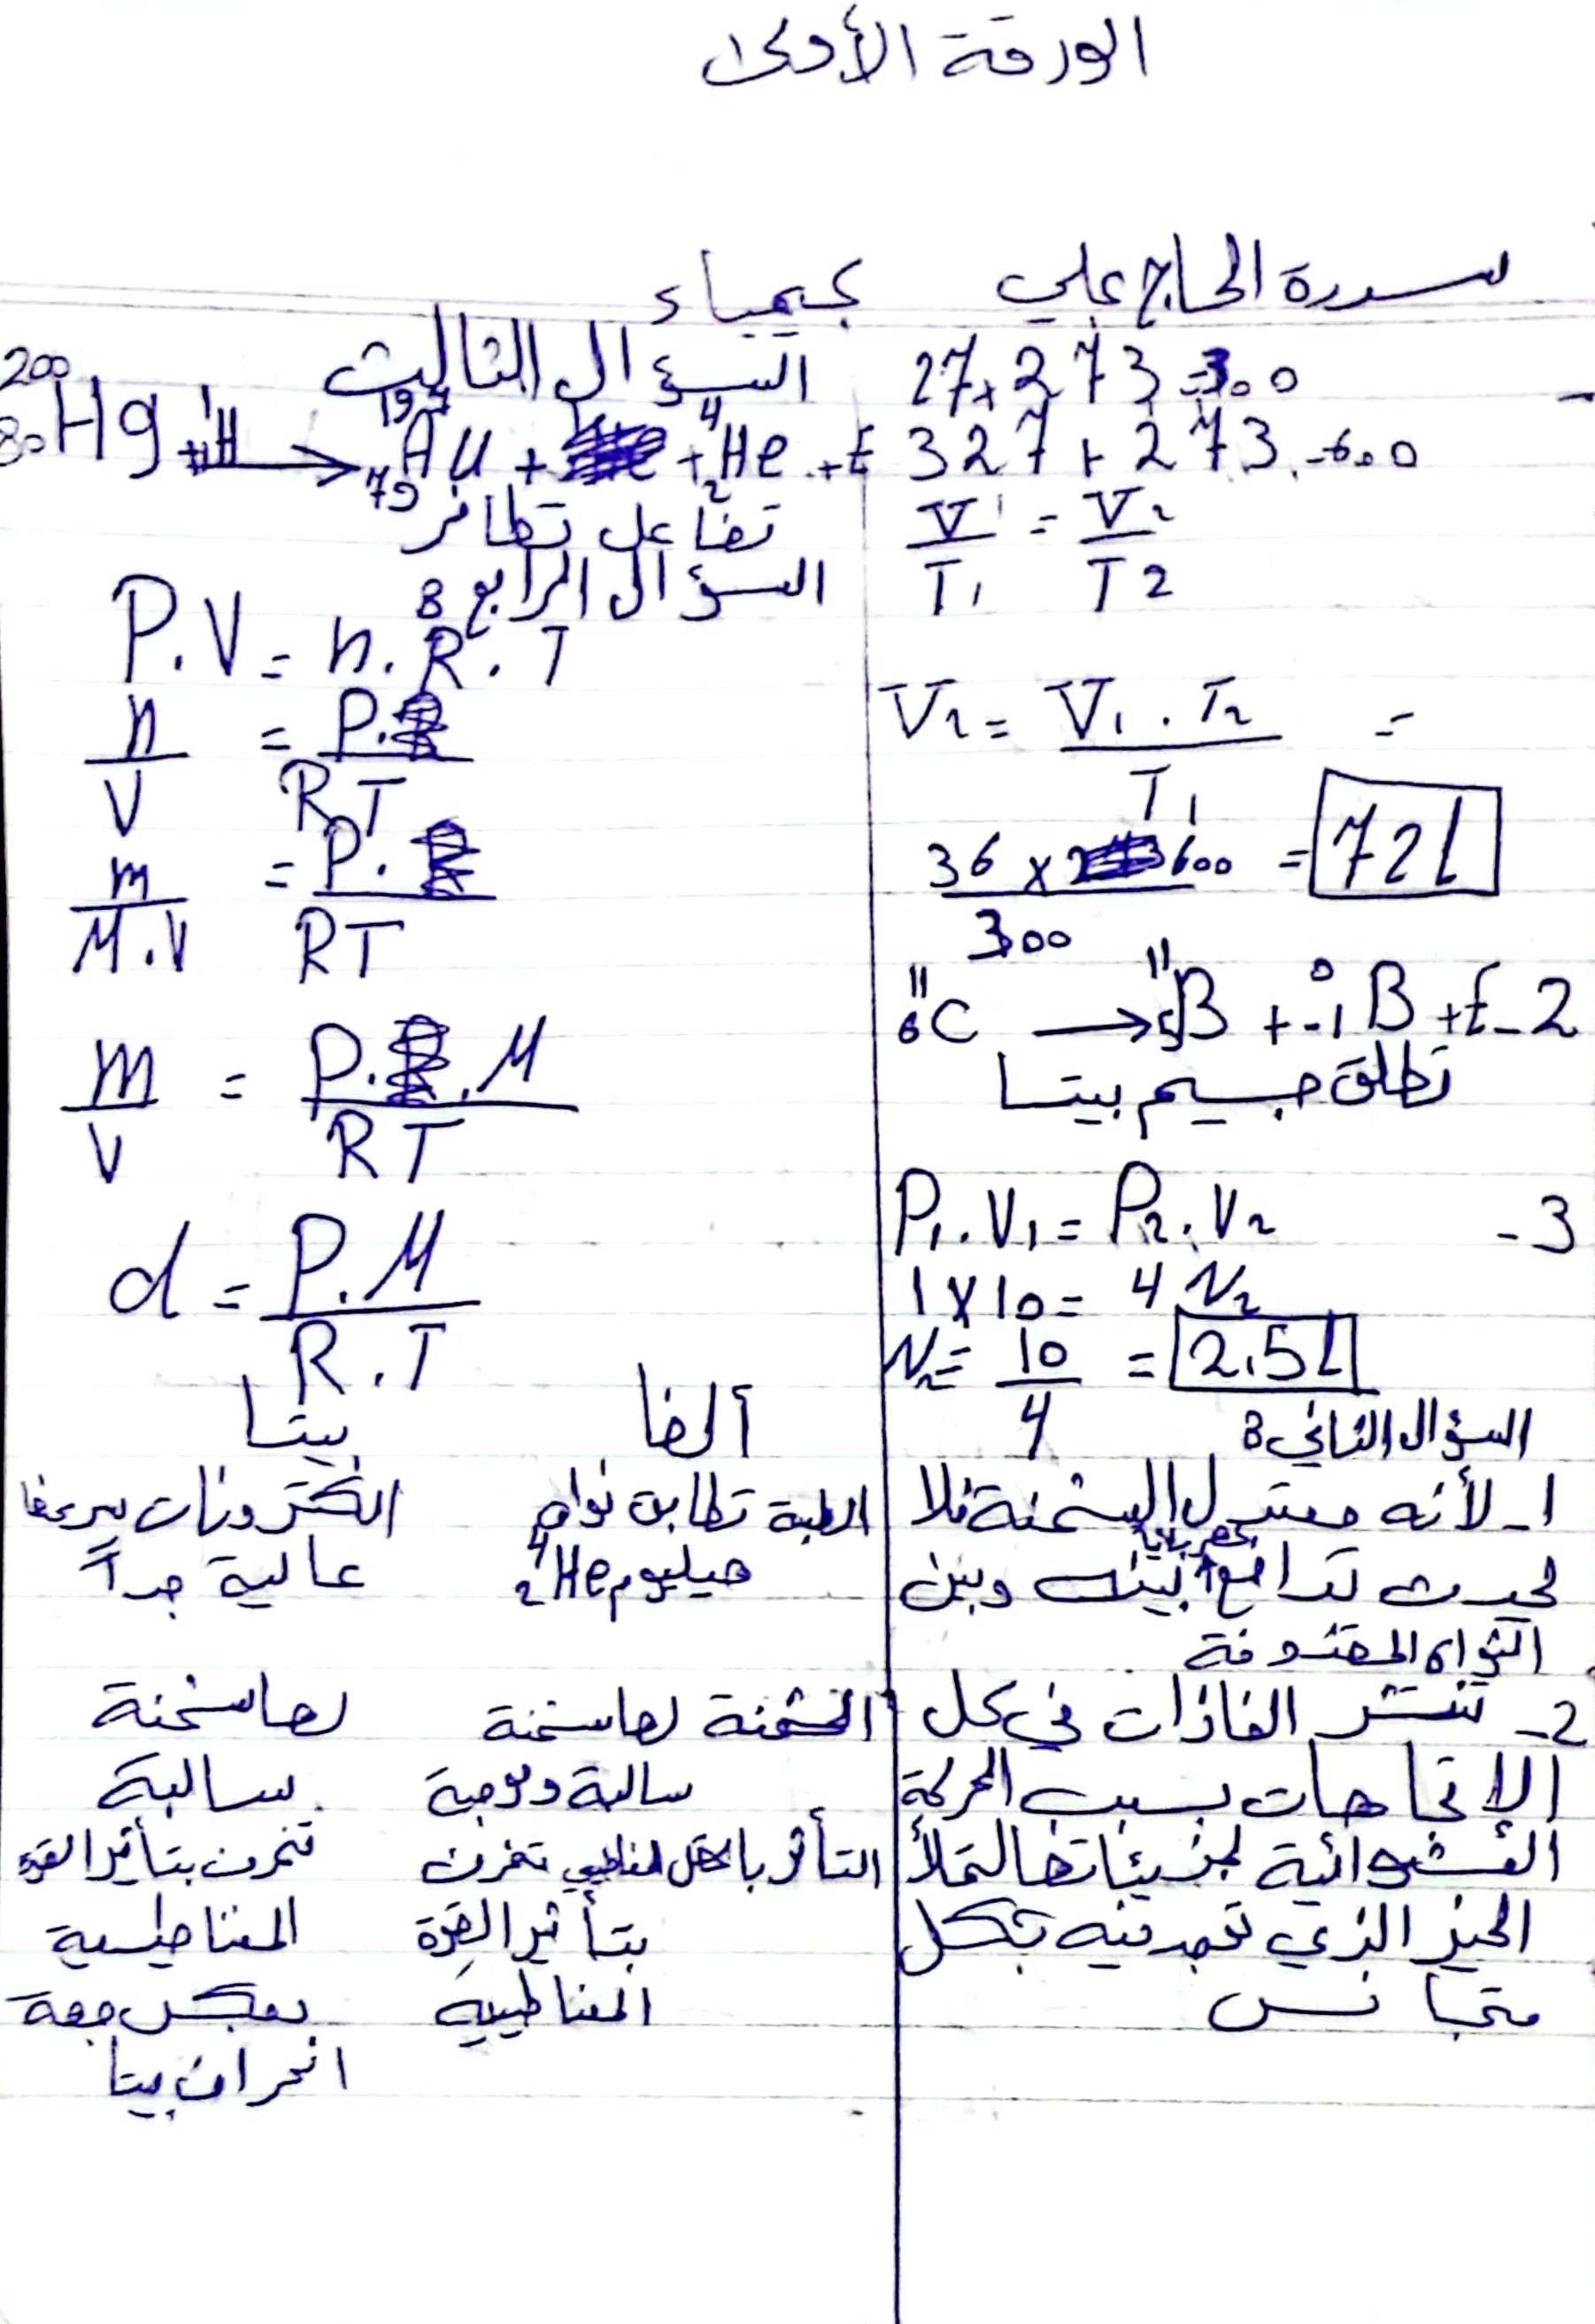 الورقة الأولى
سدرة الحاج علي كيمياء
27+273=300
327+273=600
V1/T1 = V2/T2
V2 = V1 . T2 / T1 =
36 x 600 / 300 = 72 l
2- 11 6 C → 11 5 B + 0 -1 B + E
تطلق جسيم بيتا
3- P1.V1 = P2.V2
1 x 10 = 4 V2
V2 = 10 / 4 = 2.5 l
السؤال الثاني:
1- لأنه معتدل الشحنة فلا
يحدث تدافع كهربائياً بينه وبين
النواة المقذوفة
2- تنتشر الغازات في كل
الاتجاهات بسبب الحركة
العشوائية لجزيئاتها لتملأ
الحيز الذي توجد فيه بشكل
متجانس
السؤال الثالث
200 80 Hg + 1 1 H → 197 79 Au + 4 2 He + E
تفاعل تطافر
السؤال الرابع:
P.V = n.R.T
n / V = P / RT
m / M.V = P / RT
m / V = P.M / RT
d = P.M / R.T
ألفا بيتا
الطبيعة تطابق نواة الكترونات سرعتها
هيليوم 4 2 He عالية جداً
الشحنة لها شحنة لها شحنة
سالبة وموجبة سالبة
التأثر بالحقل المغناطيسي تنحرف تنحرف بتأثير القوة
بتأثير القوة المغناطيسية
المغناطيسية بعكس جهة
انحراف بيتا